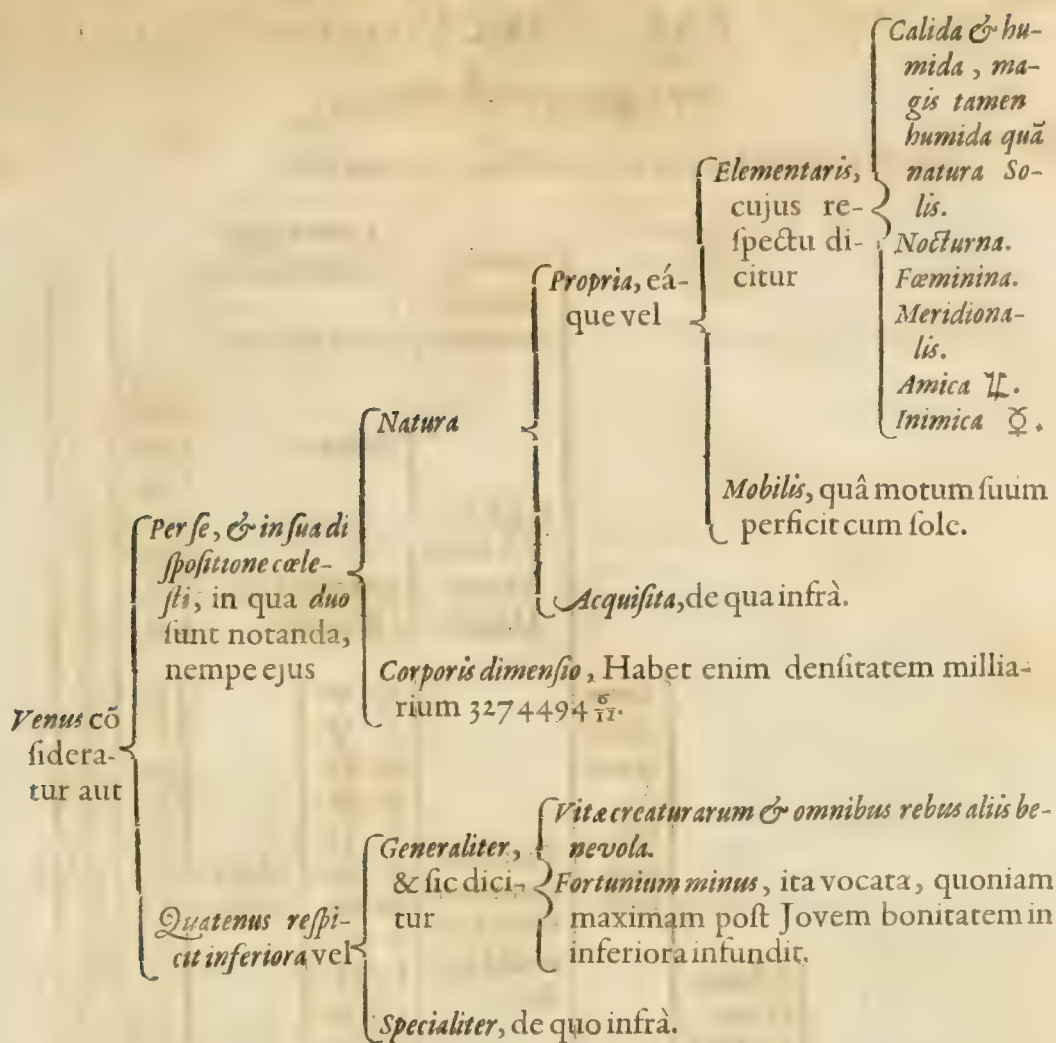 Venus cõ
ſidera-
tur aut
Per ſe, & in ſua di
ſpoſitione cœle-
ſti, in qua duo
ſunt notanda,
nempe ejus
Natura
Propria, eá-
que vel
Elementaris,
cujus re-
ſpectu di-
citur
Calida & hu-
mida, ma-
gis tamen
humida quã
natura So-
lis.
Nocturna.
Fœminina.
Meridiona-
lis.
Amica ♃.
Inimica ☿.
Mobilis, quâ motum ſuum
perficit cum ſole.
Acquiſita, de qua infrà.
Corporis dimenſio, Habet enim denſitatem millia-
rium 3274494 6/11.
Quatenus reſpi-
cit inferiora vel
Generaliter,
& ſic dici-
tur
Vitæ creaturarum & omnibus rebus aliis be-
nevola.
Fortunium minus, ita vocata, quoniam
maximam poſt Jovem bonitatem in
inferiora infundit.
Specialiter, de quo infrà.